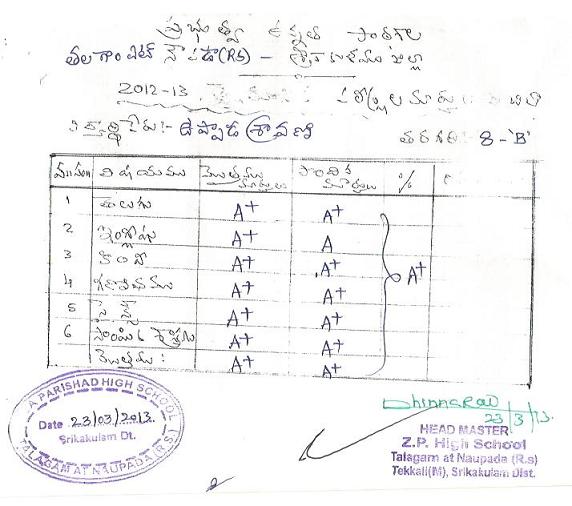 ప్రభుత్వ ఉన్నత పాఠశాల
తలగాం ఎట్ నౌపడ(RS) - శ్రీకాకుళము జిల్లా
2012-13
ఉప్పాడ శ్రావణి తరగతి:- 8-'B'
విషయము మొత్తము మార్కులు పొందిన మార్కులు %
1 తెలుగు A+ A+
2 ఇంగ్లీషు A+ A
3 హిందీ A+ A+
4 గణితము A+ A+ A+
5 సైన్స్ A+ A+
6 సాంఘిక శాస్త్రము A+ A+
మొత్తము: A+ A+
A PARISHAD HIGH SCHOOL
Date 23/03/2013
Srikakulam Dt.
TALAGAM AT NAUPADA (R.S.)
23/3/13
HEAD MASTER
Z.P. High School
Talagam at Naupada (R.s)
Tekkali(M), Srikakulam Dist.